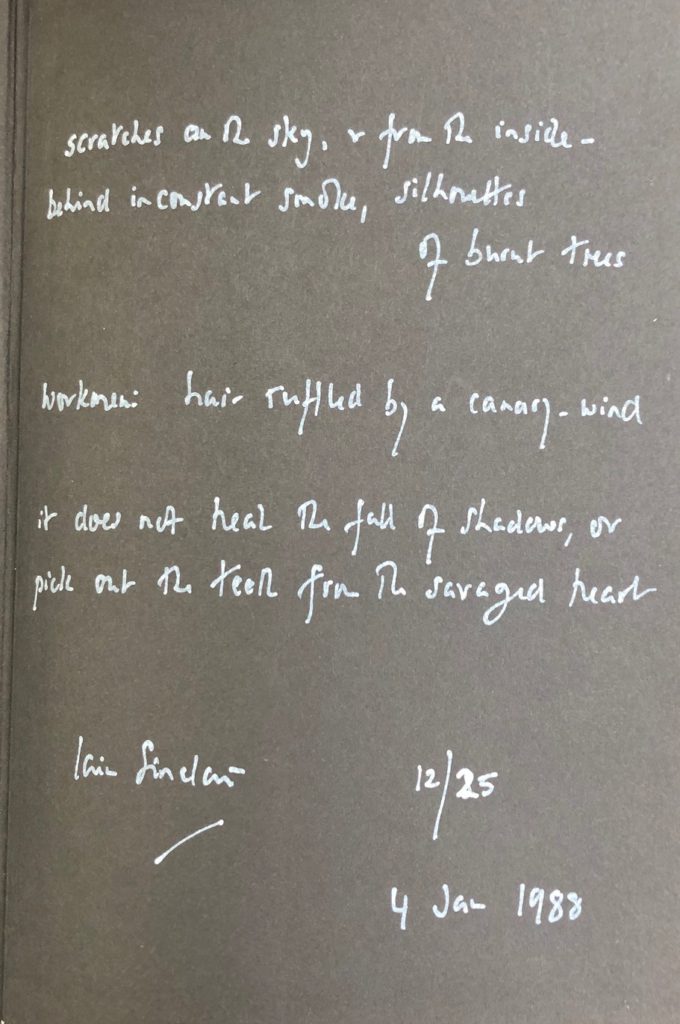 scratches on the sky, & from the inside -
behind inconstant smoke, silhouettes
of burnt trees
workmen: hair ruffled by a canary-wind
it does not heal the fall of shadows, or
pick out the teeth from the savaged heart
Iain Sinclair
12/25
4 Jan 1988